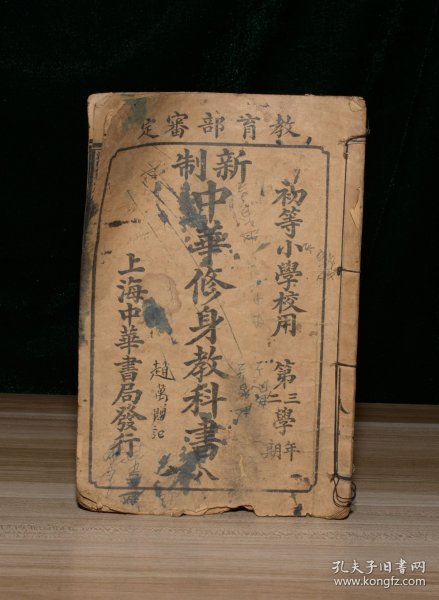 教育部審定
初等小學校用
第三學年
第二學期
新制
中華修身教科書
八
上海中華書局發行
趙萬
記
孔夫子旧书网
www.kongfz.com